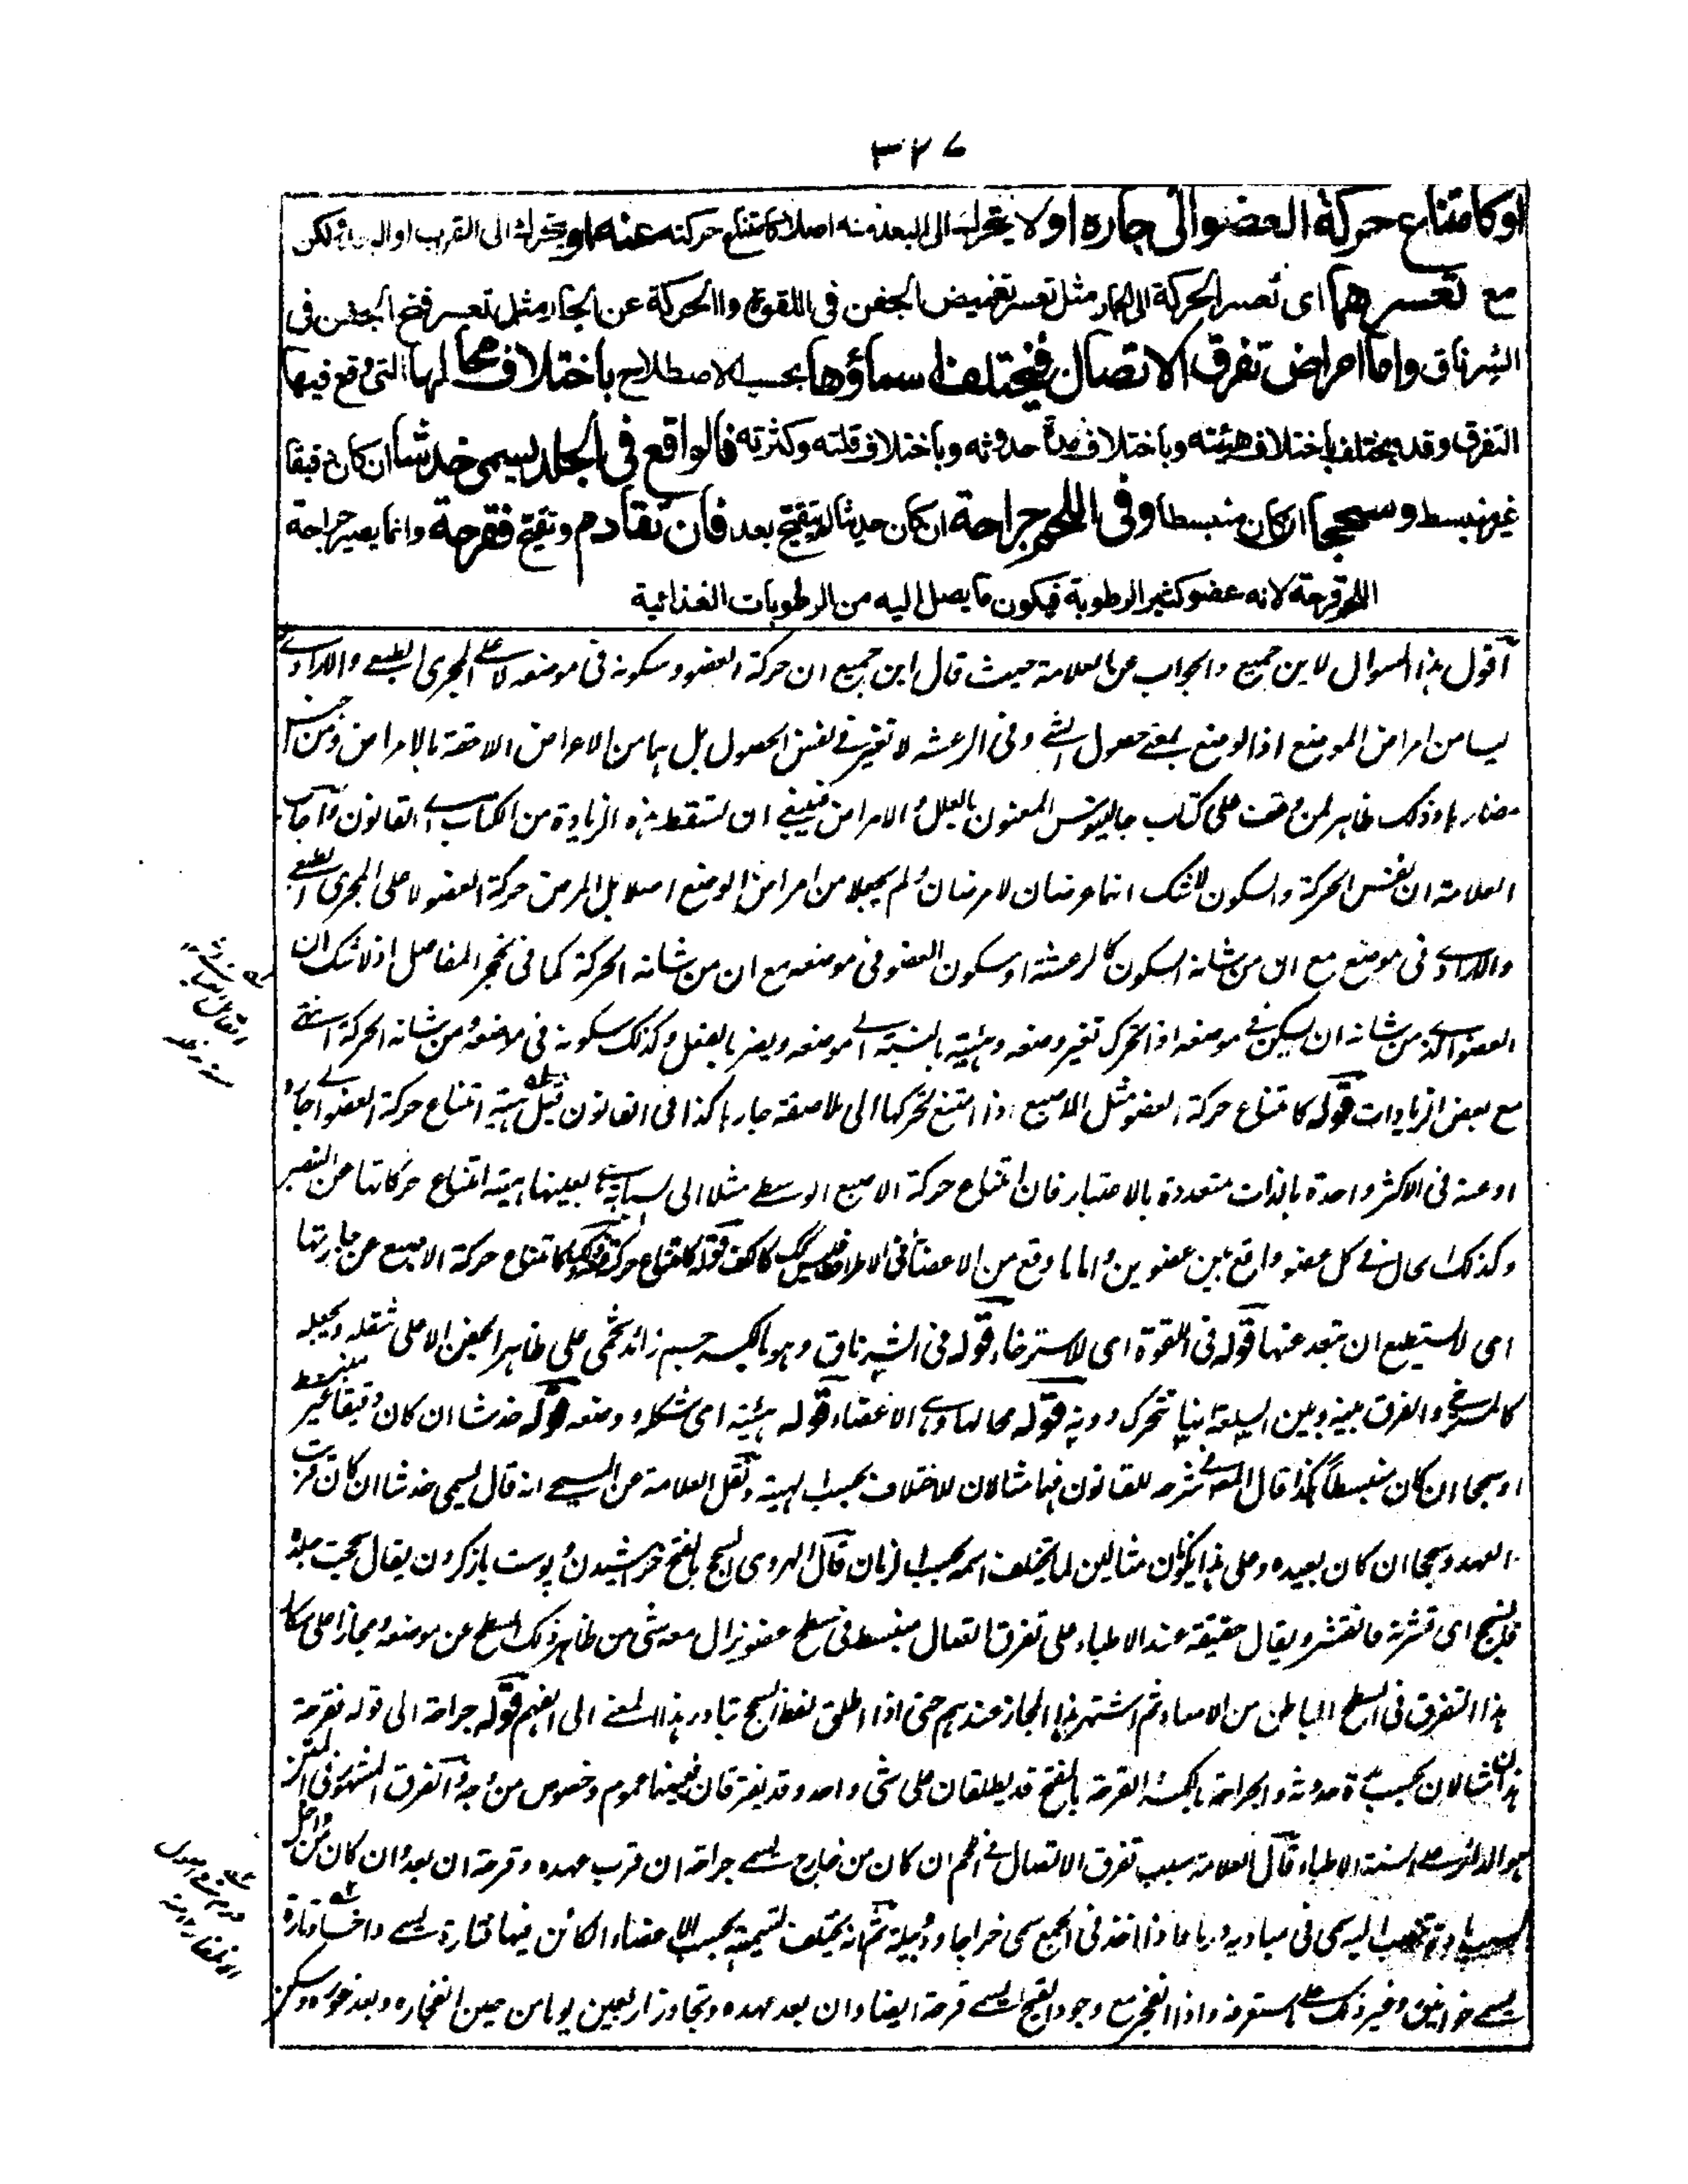 ٣٢٧
او كامتناع حركة العضو الى جاره او لا يتحرك الى البعد منه اصلا كامتناع حركته عنه او يتحرك الى القريب او البعيد ولكن
مع تعسرهما اى تعسر الحركة الى الجار مثل تعسر تغميض الجفن فى اللقوة والحركة عن الجار مثل تعسر فتح الجفن فى
الشرناق واما امراض تفرق الاتصال فيختلف اسماؤها بحسب الاصطلاح باختلاف محالها التى وقع فيها
التفرق وقد يختلف باختلاف هيئته وباختلاف مدة حدوثه وباختلاف قلته وكثرته فالواقع فى الجلد يسمى خدشا ان كان دقيقا
غير منبسط وسحجا ان كان منبسطا وفى اللحم جراحة ان كان حديثا لم يتقيح بعد فان تقادم وتقيح فقرحة وانما يصير جراحة
اللحم قرحة لانه عضو كثير الرطوبة فيكون ما يصل اليه من الرطوبات الغذائية
اقول هذا السوال لابن جميع والجواب عن العلامة حيث قال ابن جميع ان حركة العضو وسكونه فى موضعه لا على المجرى الطبيعى والارادى
ليسا من امراض الموضع اذ الوضع بمعنى حصول الشئ وفى الرعشه لا تغير فى نفس الحصول بل هما من الاعراض اللاحقة بالامراض ومن جنس
مضارها وذلك ظاهر لمن وقف على كتاب جالينوس المعنون بالعلل والامراض فينبغى ان تسقط هذه الزيادة من الكتاب اى القانون واجاب
العلامة ان نفس الحركة والسكون لاشك انهما عرضان لا مرضان ولم يجعلا من امراض الوضع اصلا بل المرض حركة العضو لا على المجرى الطبيعى
والارادى فى موضع مع ان من شانه السكون كالرعشة او سكون العضو فى موضعه مع ان من شانه الحركة كما فى تحجر المفاصل اذ لاشك ان
العضو الذى من شانه ان يسكن فى موضعه اذا تحرك تغير وضعه وهيئته بالنسبة الى موضعه ويضر بالفعل وكذلك سكونه فى موضعه ومن شانه الحركة انتهى
مع بعض الزيادات قوله كامتناع حركة العضو مثل الاصبع اذا امتنع تحركها الى ملاصقة جارها كذا فى القانون قيل هيئة امتناع حركة العضو الى جاره
او عنه فى الاكثر واحدة بالذات متعددة بالاعتبار فان امتناع حركة الاصبع الوسطى مثلا الى السبابة بعينها هيئة امتناع حركاتها عن البنصر
وكذلك الحال فى كل عضو واقع بين عضوين واما ما وقع من الاعضاء فى الاطراف فليس كذلك كالكف قوله كامتناع حركته عنه كامتناع حركة الاصبع عن جارتها
اى لا يستطيع ان تبعد عنها قوله فى اللقوة اى لاسترخاء قوله فى الشرناق وهو بالكسر جسم زائد شحمى على ظاهر الجفن الاعلى يثقله ويجعله
كالمسترخى والفرق بينه وبين السلعة انها تتحرك دونه قوله محالها وهى الاعضاء قوله هيئته اى شكله ووضعه قوله خدشا ان كان دقيقا غير منبسط
او سحجا ان كان منبسطا هكذا قال المص فى شرحه للقانون فهما مثالان للاختلاف بحسب الهيئة ونقل العلامة عن المسيحى انه قال يسمى خدشا ان كان قريب
العهد وسحجا ان كان بعيده وعلى هذا يكونان مثالين لما يختلف اسمه بحسب الزمان قال الهروى السحج بالفتح خراشيدن و پوست باز كردن يقال سحجت جلده
فانسحج اى قشرته فانقشر ويقال حقيقة عند الاطباء على تفرق اتصال منبسط فى سطح عضو يزال معه شى من ظاهر ذلك السطح عن موضعه ومجازا على
هذا التفرق فى السطح الباطن من الامعاء ثم اشتهر هذا المجاز عندهم حتى اذا اطلق لفظ السحج تبادر هذا المعنى الى الفهم قوله جراحة الى قوله فقرحة
هذان مثالان بحسب مدة حدوثه والجراحة بالكسر والقرحة بالفتح قد يطلقان على شى واحد وقد يفترقان فبينهما عموم وخصوص من وجه والفرق المشهور فى
هو الدائر على السنة الاطباء قال العلامة سبب تفرق الاتصال فى اللحم ان كان من خارج يسمى جراحة ان قرب عهده وقرحة ان بعد وان كان من داخل
يسمى فى مباديه ورما فاذا اخذ فى الجمع سمى خراجا ودبيلة ثم انه يختلف تسميته بحسب الاعضاء الكائن فيها فتارة يسمى داخسا وتارة
يسمى خوانيق وغير ذلك على ما ستعرفه واذا انفجر مع وجود القيح يسمى قرحة ايضا وان بعد عهده وتجاوز اربعين يوما من حين انفجاره وبعد غوره